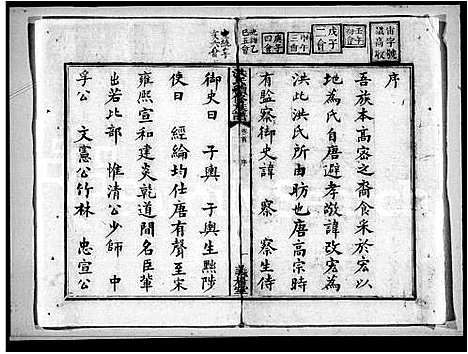 序
吾族本高密之裔食采於宏以
地為氏自唐避孝敬諱改宏為
洪此洪氏所由昉也唐高宗時
有監察御史諱 察 察生侍
御史曰 子輿 子輿生黜陟
使曰 經綸均仕唐有聲至宋
雍熙宣和建炎乾道間名臣輩
出若比部 惟清公少師 中
孚公 文憲公竹林 忠宣公
宙字號
戊子
二會
庚子
四會
三會
壬子